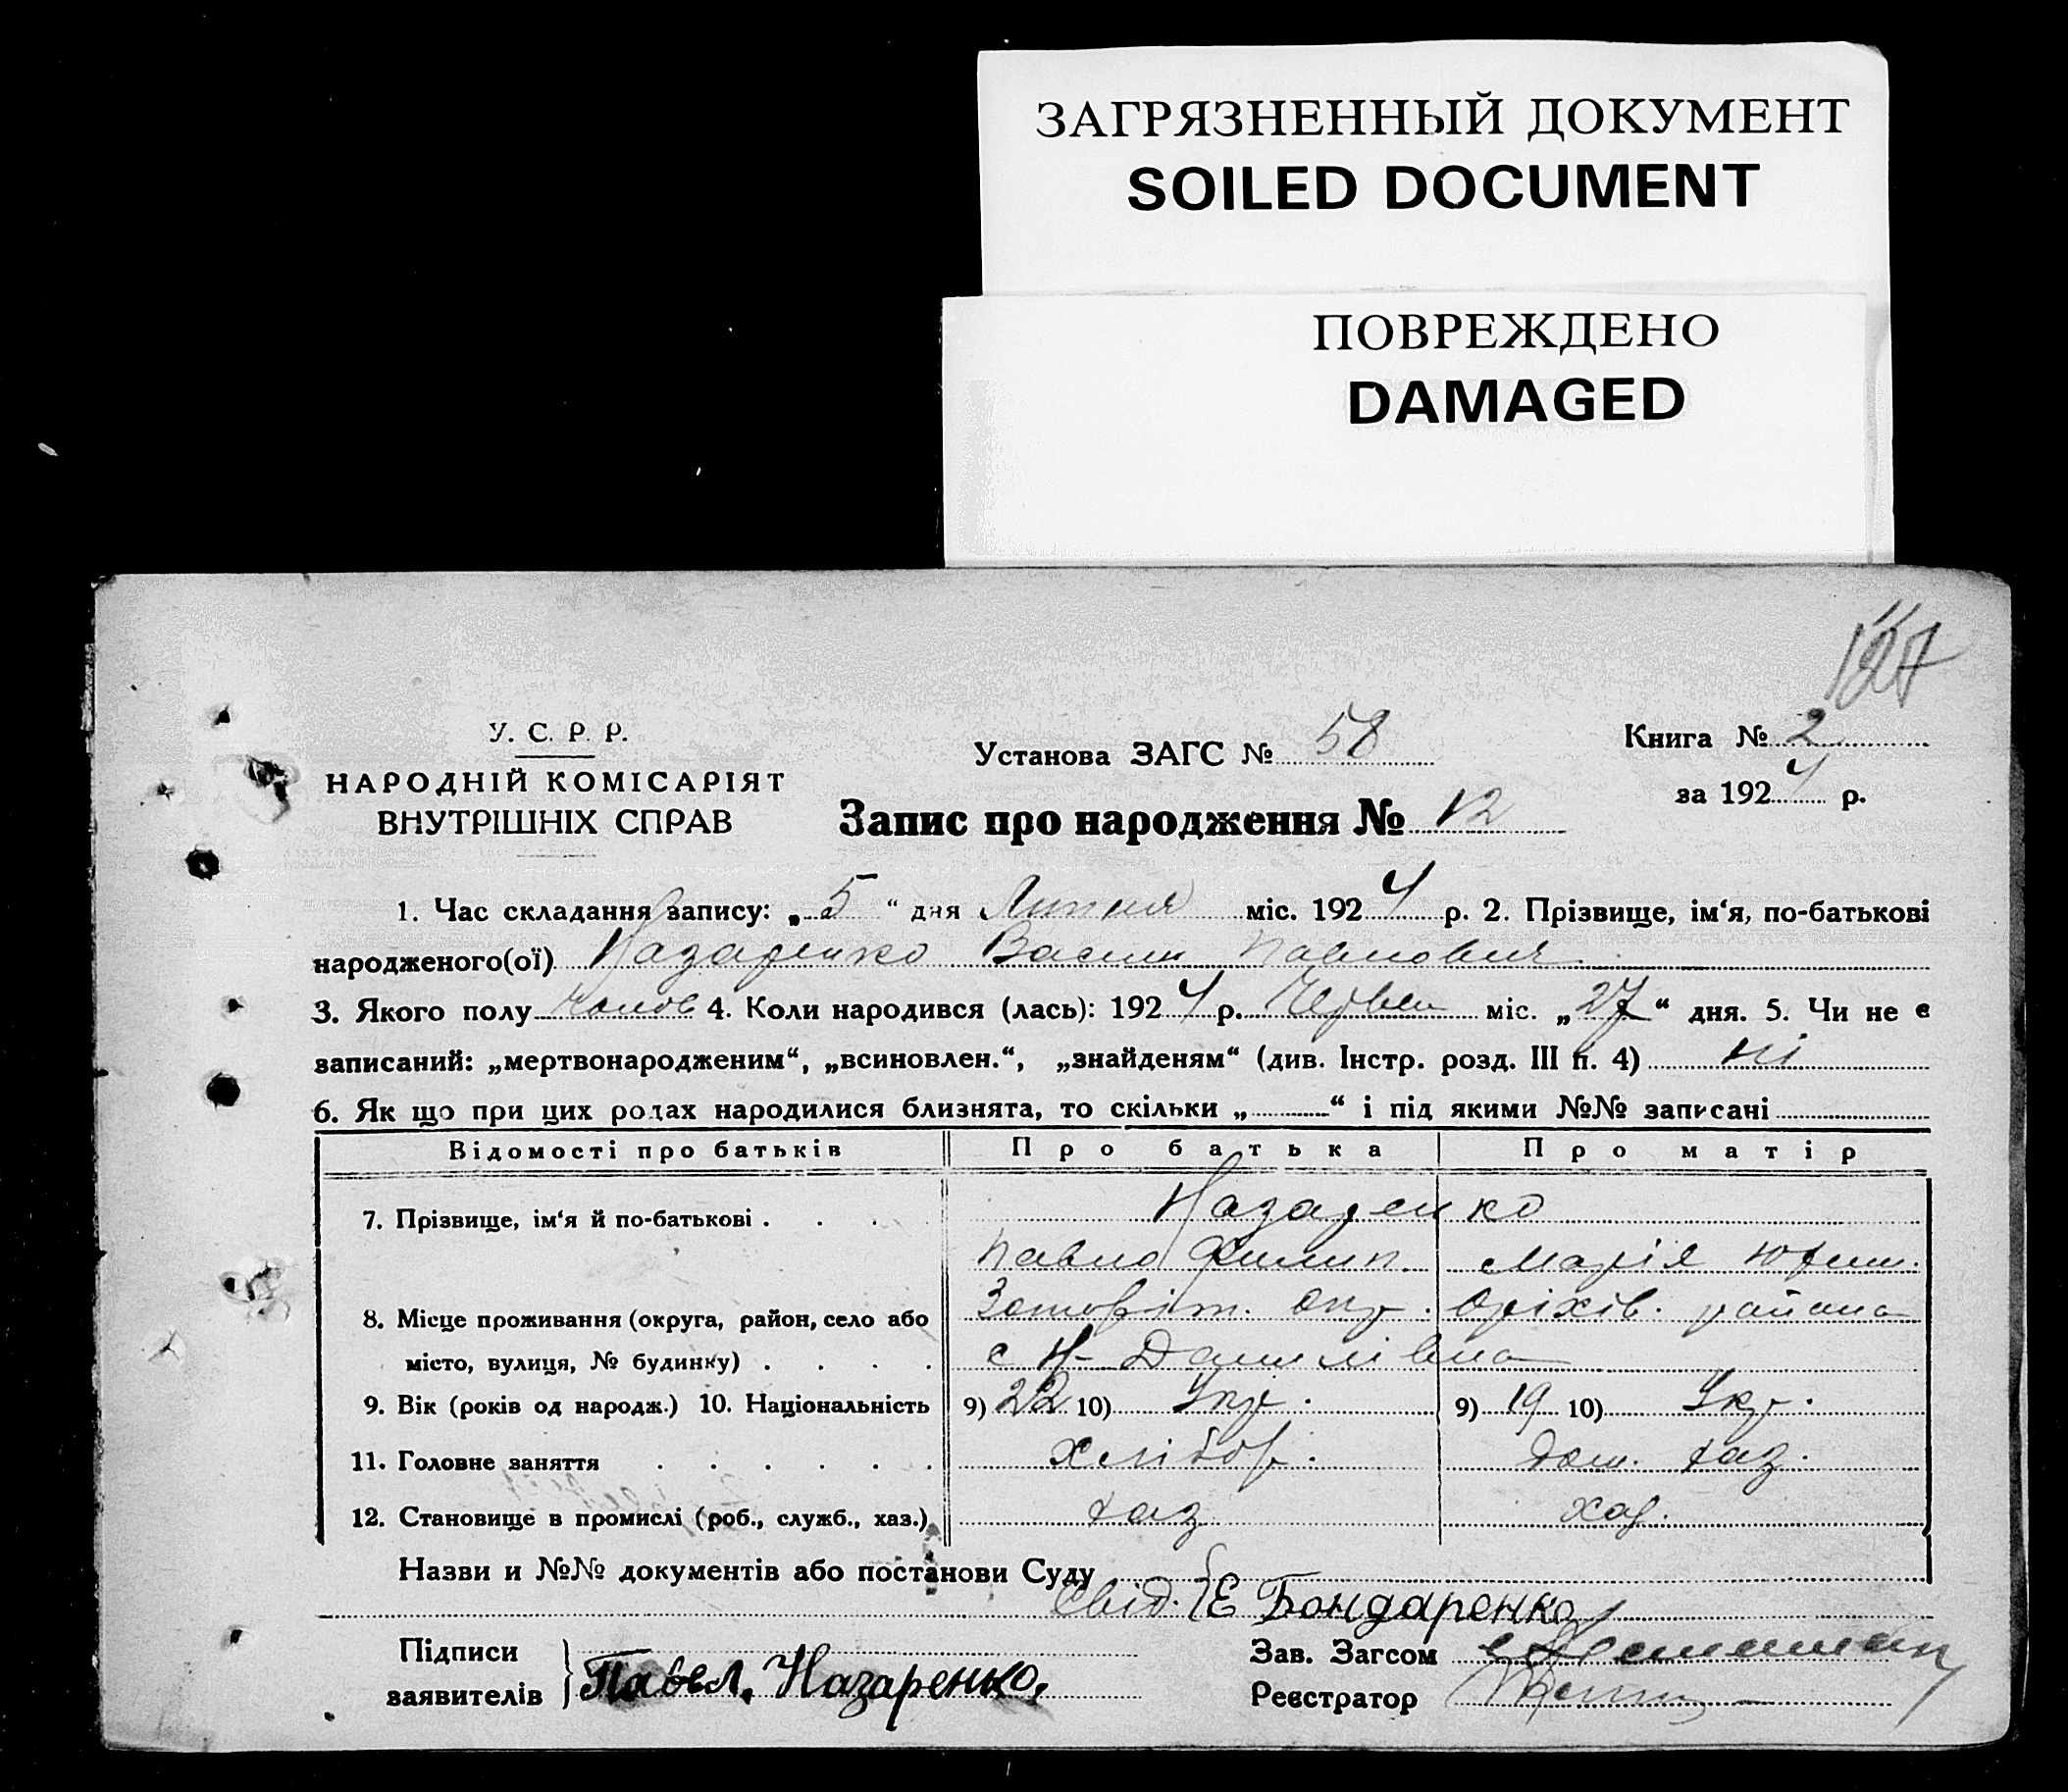 ЗАГРЯЗНЕННЫЙ ДОКУМЕНТ
SOILED DOCUMENT
ПОВРЕЖДЕНО
DAMAGED
У. С. Р. Р.
НАРОДНІЙ КОМІСАРІЯТ
ВНУТРІШНІХ СПРАВ
Установа ЗАГС № 58
Книга № 2
за 1924 р.
Запис про народження № 12
1. Час складання запису: „5“ дня Липня міс. 1924 р. 2. Прізвище, ім‘я, по-батькові
народженого(ої) Назаренко Васил Павлович
3. Якого полу чолов 4. Коли народився (лась): 1924 р. Червен міс. „27“ дня. 5. Чи не є
записаний: „мертвонародженим“, „всиновлен.“, „знайденям“ (див. Інстр. розд. III п. 4) ні
6. Як що при цих родах народилися близнята, то скільки „ “ і під якими №№ записані
Відомості про батьків Про батька Про матір
7. Прізвище, ім‘я й по-батькові . . . Назаренко
Павло Филип. Марія Юхим.
8. Місце проживання (округа, район, село або Запоріт. окр. Оріхів. района
місто, вулиця, № будинку) . . . . с Н- Данилівка
9. Вік (років од народж.) 10. Національність 9) 22 10) Укр. 9) 19 10) Укр.
11. Головне заняття . . . . . . Хлібор. дом. хаз.
12. Становище в промислі (роб., служб., хаз.) хаз хаз.
Назви и №№ документів або постанови Суду
Свід. Е Бондаренко
Підписи
заявителів Павел, Назаренко,
Зав. Загсом
Реєстратор